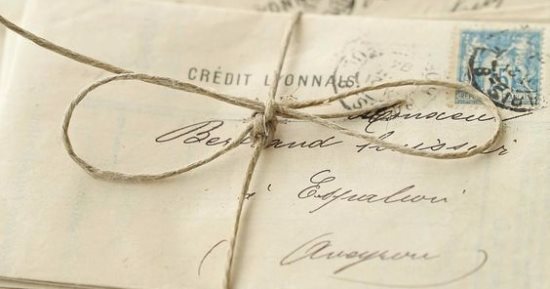 CRÉDIT LYONNAIS
Monsieur
Bertrand
à Espalion
Aveyron
PARIS